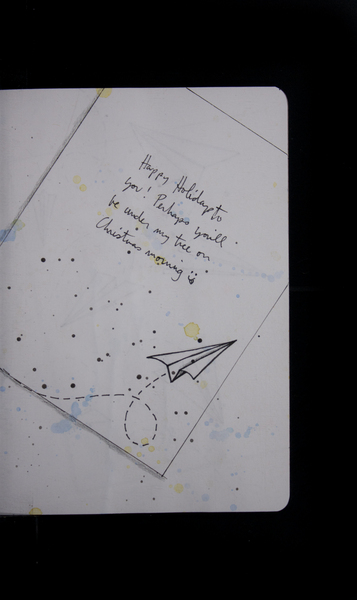 Happy Holidays to
you! Perhaps you'll
be under my tree on
Christmas morning